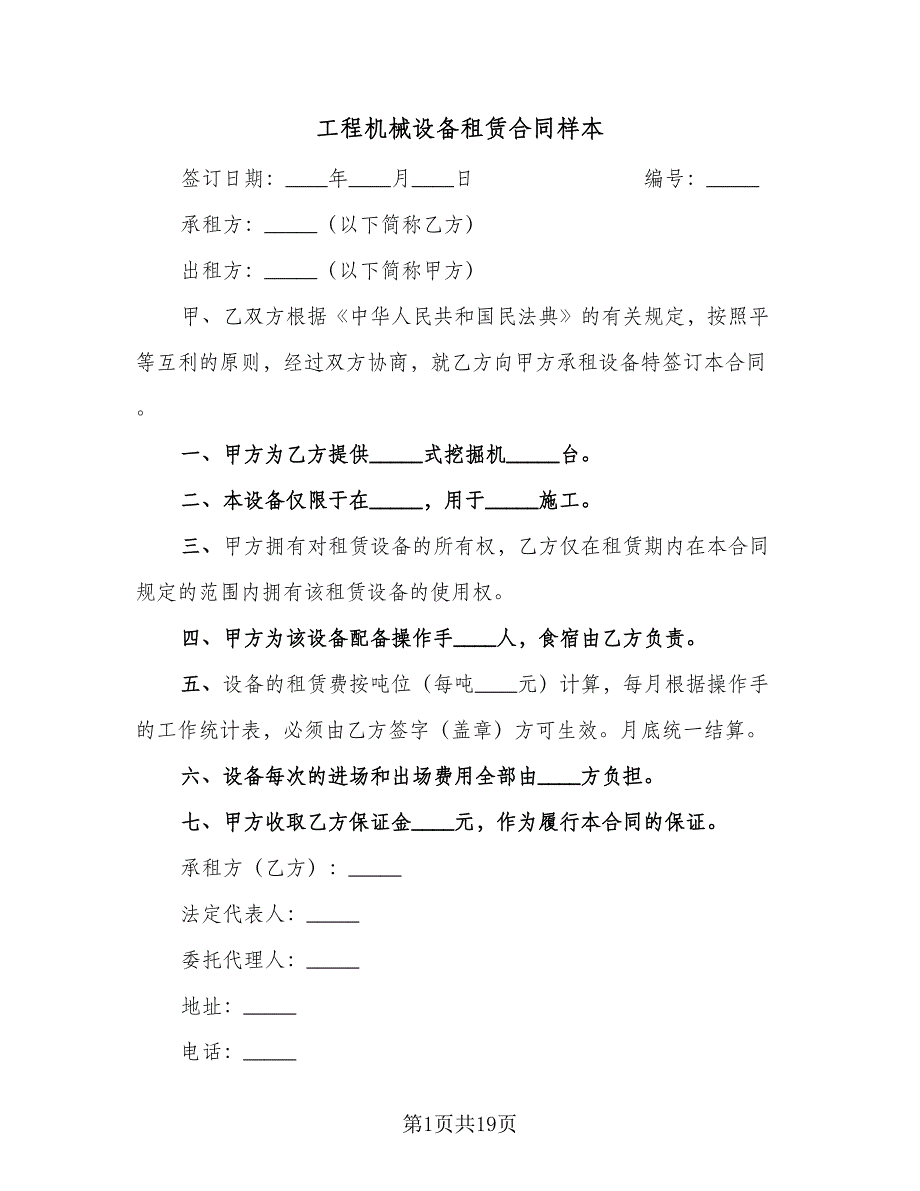 工程机械设备租赁合同样本
签订日期：____年____月____日 编号：_____
承租方：_____（以下简称乙方）
出租方：_____（以下简称甲方）
甲、乙双方根据《中华人民共和国民法典》的有关规定，按照平
等互利的原则，经过双方协商，就乙方向甲方承租设备特签订本合同
。
一、甲方为乙方提供_____式挖掘机_____台。
二、本设备仅限于在_____，用于_____施工。
三、甲方拥有对租赁设备的所有权，乙方仅在租赁期内在本合同
规定的范围内拥有该租赁设备的使用权。
四、甲方为该设备配备操作手____人，食宿由乙方负责。
五、设备的租赁费按吨位（每吨____元）计算，每月根据操作手
的工作统计表，必须由乙方签字（盖章）方可生效。月底统一结算。
六、设备每次的进场和出场费用全部由____方负担。
七、甲方收取乙方保证金____元，作为履行本合同的保证。
承租方（乙方）：_____
法定代表人：_____
委托代理人：_____
地址：_____
电话：_____
第1页共19页